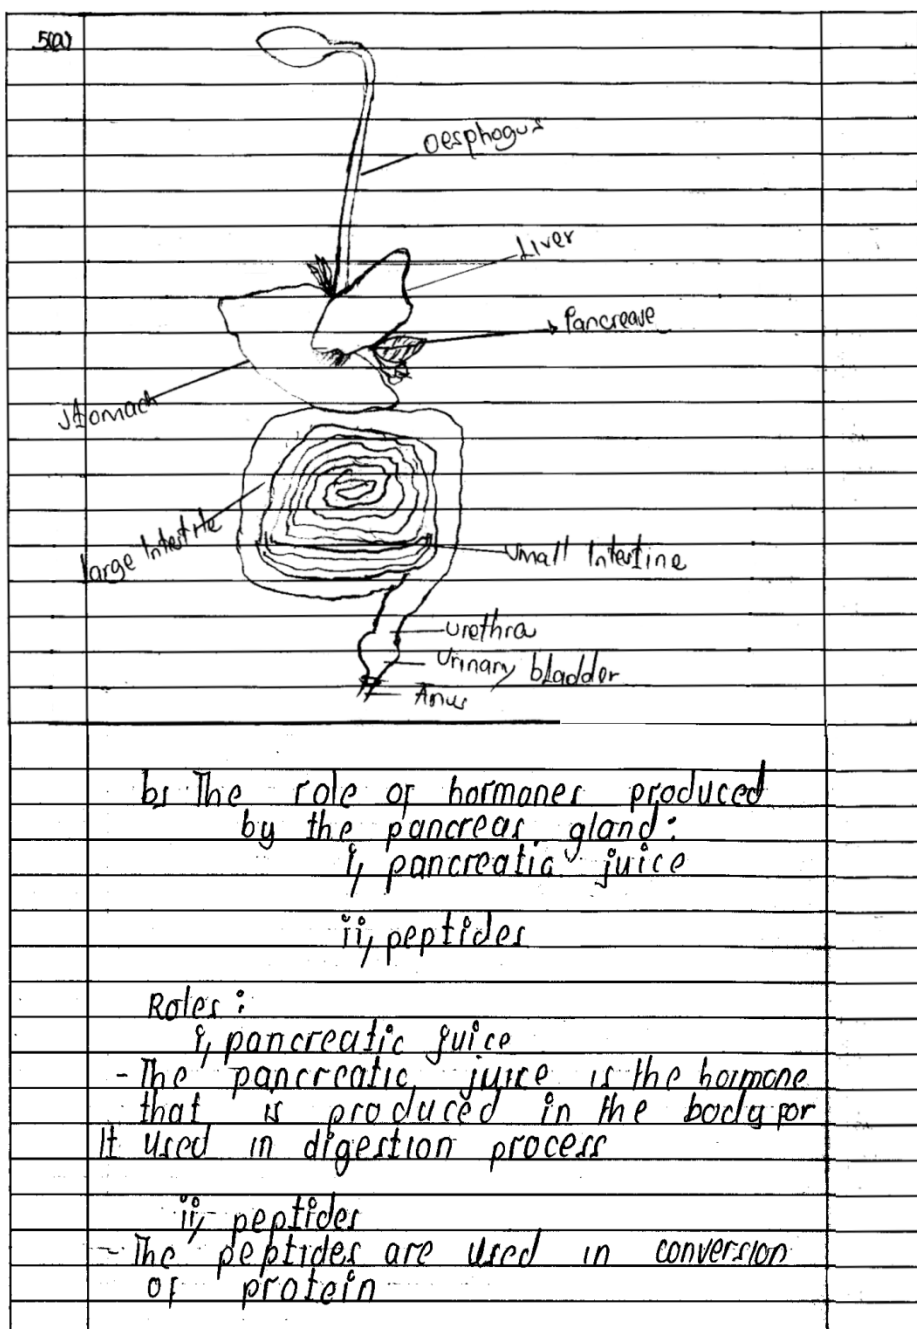 5(a)
Oesphogus
Liver
Pancrease
Stomach
large Intestite
Small Intestine
Urethra
Urinary bladder
Anus
b, The role of hormones produced
by the pancreas gland:
i, pancreatic juice
ii, peptides
Roles:
i, pancreatic juice
- The pancreatic juice is the hormone
that is produced in the body for
It used in digestion process
ii, peptides
- The peptides are used in conversion
of protein